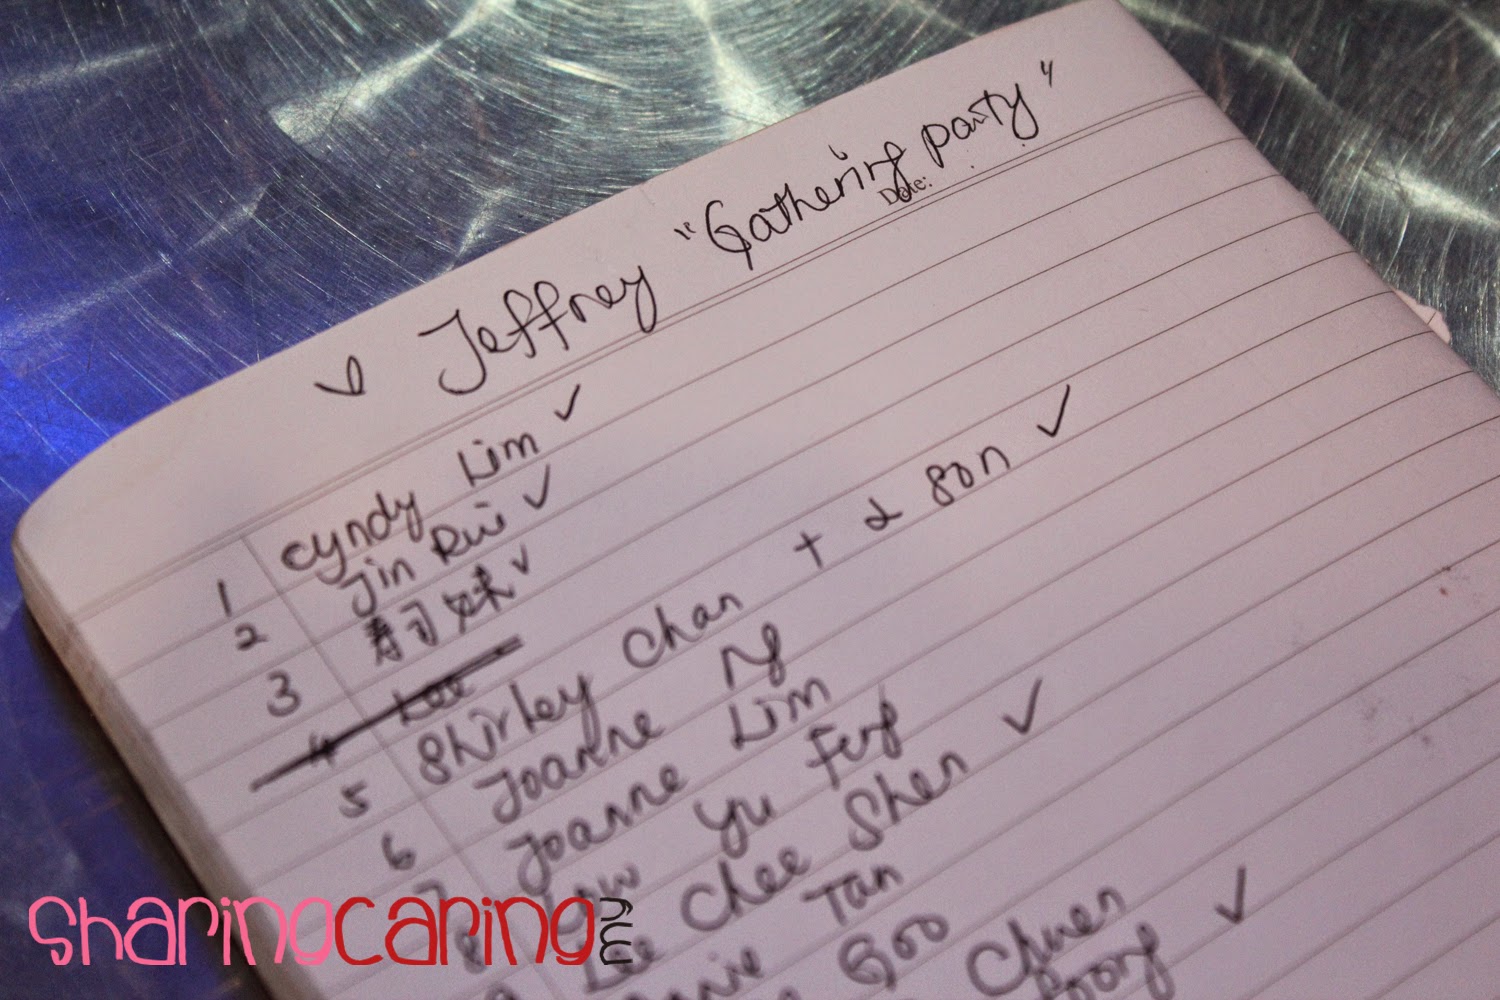 Jeffrey "Gathering party"
Date:
1 Cyndy Lim ✓
2 Jin Rui ✓
3 寿司妹 ✓
4 Lee
5 Shirley Chan + 2 son ✓
6 Joanne Ng
7 Joanne Lim
8 Yu Feng
Lee Chee Shen ✓
Tan
Goo
Chuen
✓
sharingcaring my